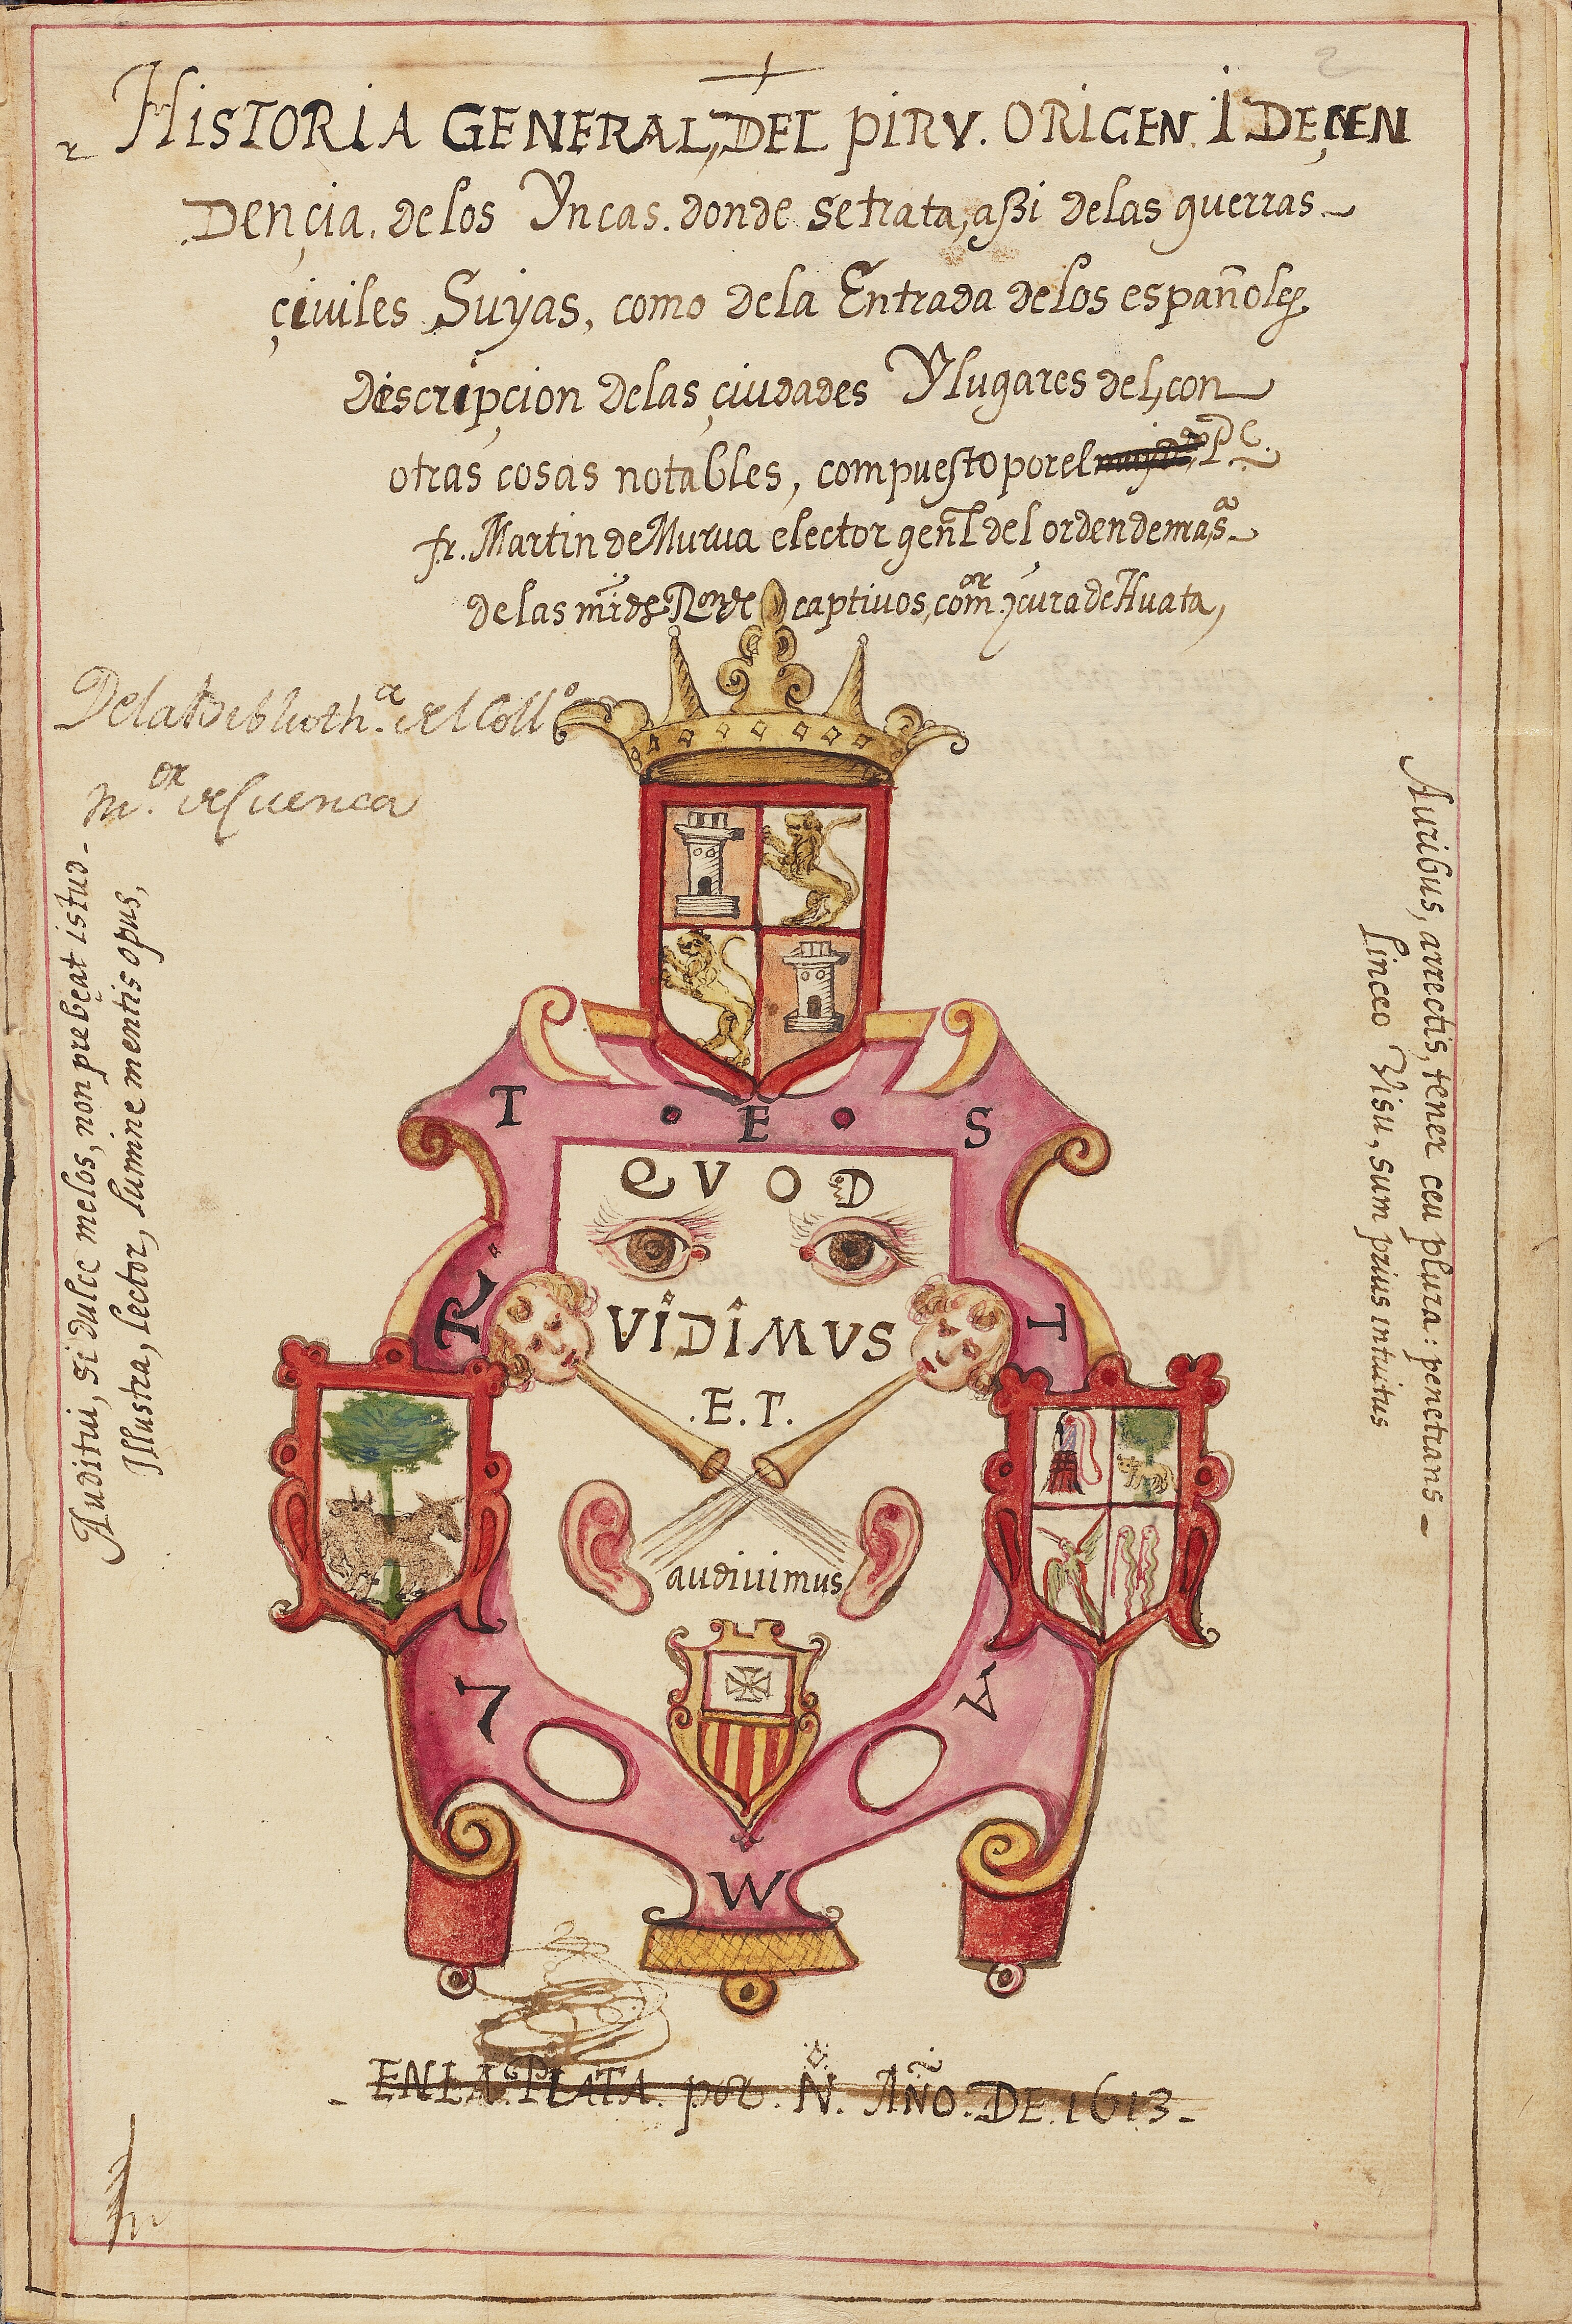 HISTORIA GENERAL, DEL PIRV. ORIGEN. I DEÇEN
DENÇia. de los Yncas. donde setrata, aßi delas guerras
çiviles Suyas, como dela Entrada delos españoles
discripçion delas çiudades Ylugares del, con
otras cosas notables, compuesto porel Pe.
fr. Martin de Murua elector genl del ordendema sa
de las captiuos, comor. y cura de Huata,
Dela bibliotha. del Collo
mor. de Cuenca
Auditui, si dulce melos, non prebeat istud
Illustra, lector, lumine mentis opus,
Auribus, arrectis, tener ceu plura: penetrans
linceo Visu, sum prius intuitus
T E S
QVOD
R T
VIDIMUS
.E.T.
audiuimus
L A
W
EN LA PLATA. por. N. AÑO. DE. 1613